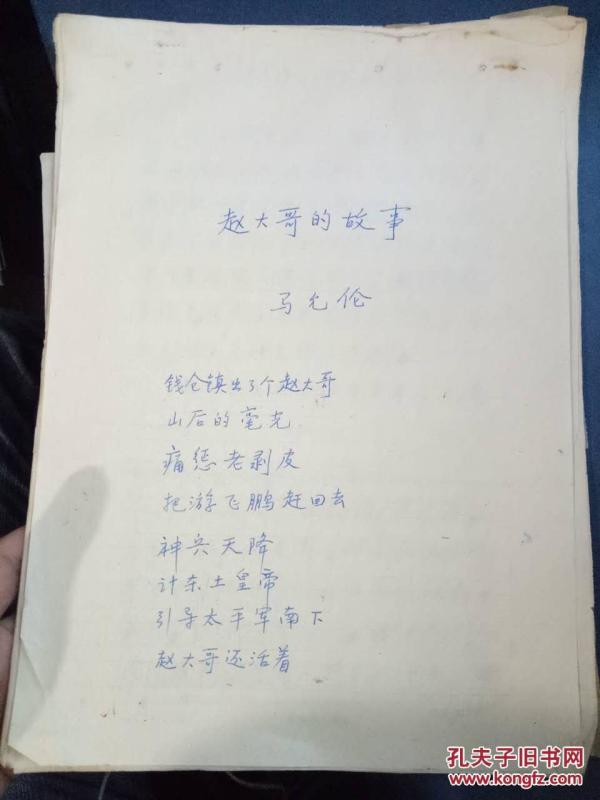 赵大哥的故事
马允伦
钱仓镇出了个赵大哥
山后的毫光
痛惩老剥皮
把游飞鹏赶回去
神兵天降
计杀土皇帝
引导太平军南下
赵大哥还活着
孔夫子旧书网
www.kongfz.com